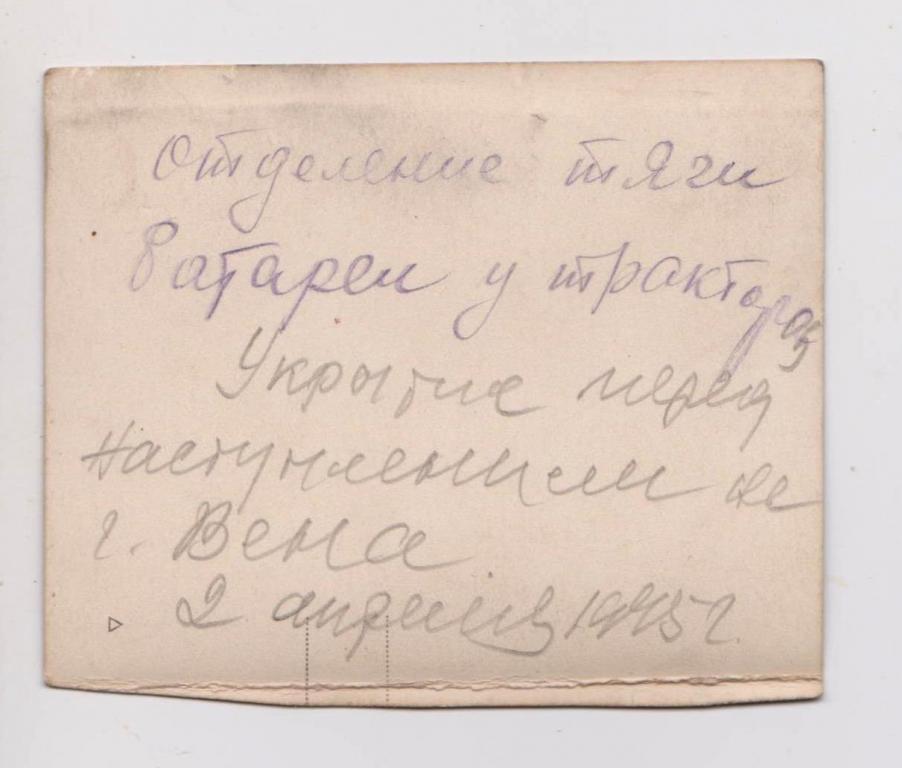 Отделение тяги
батареи у тракторов
Укрытие перед
наступлением на
г. Вена
2 апреля 1945 г.